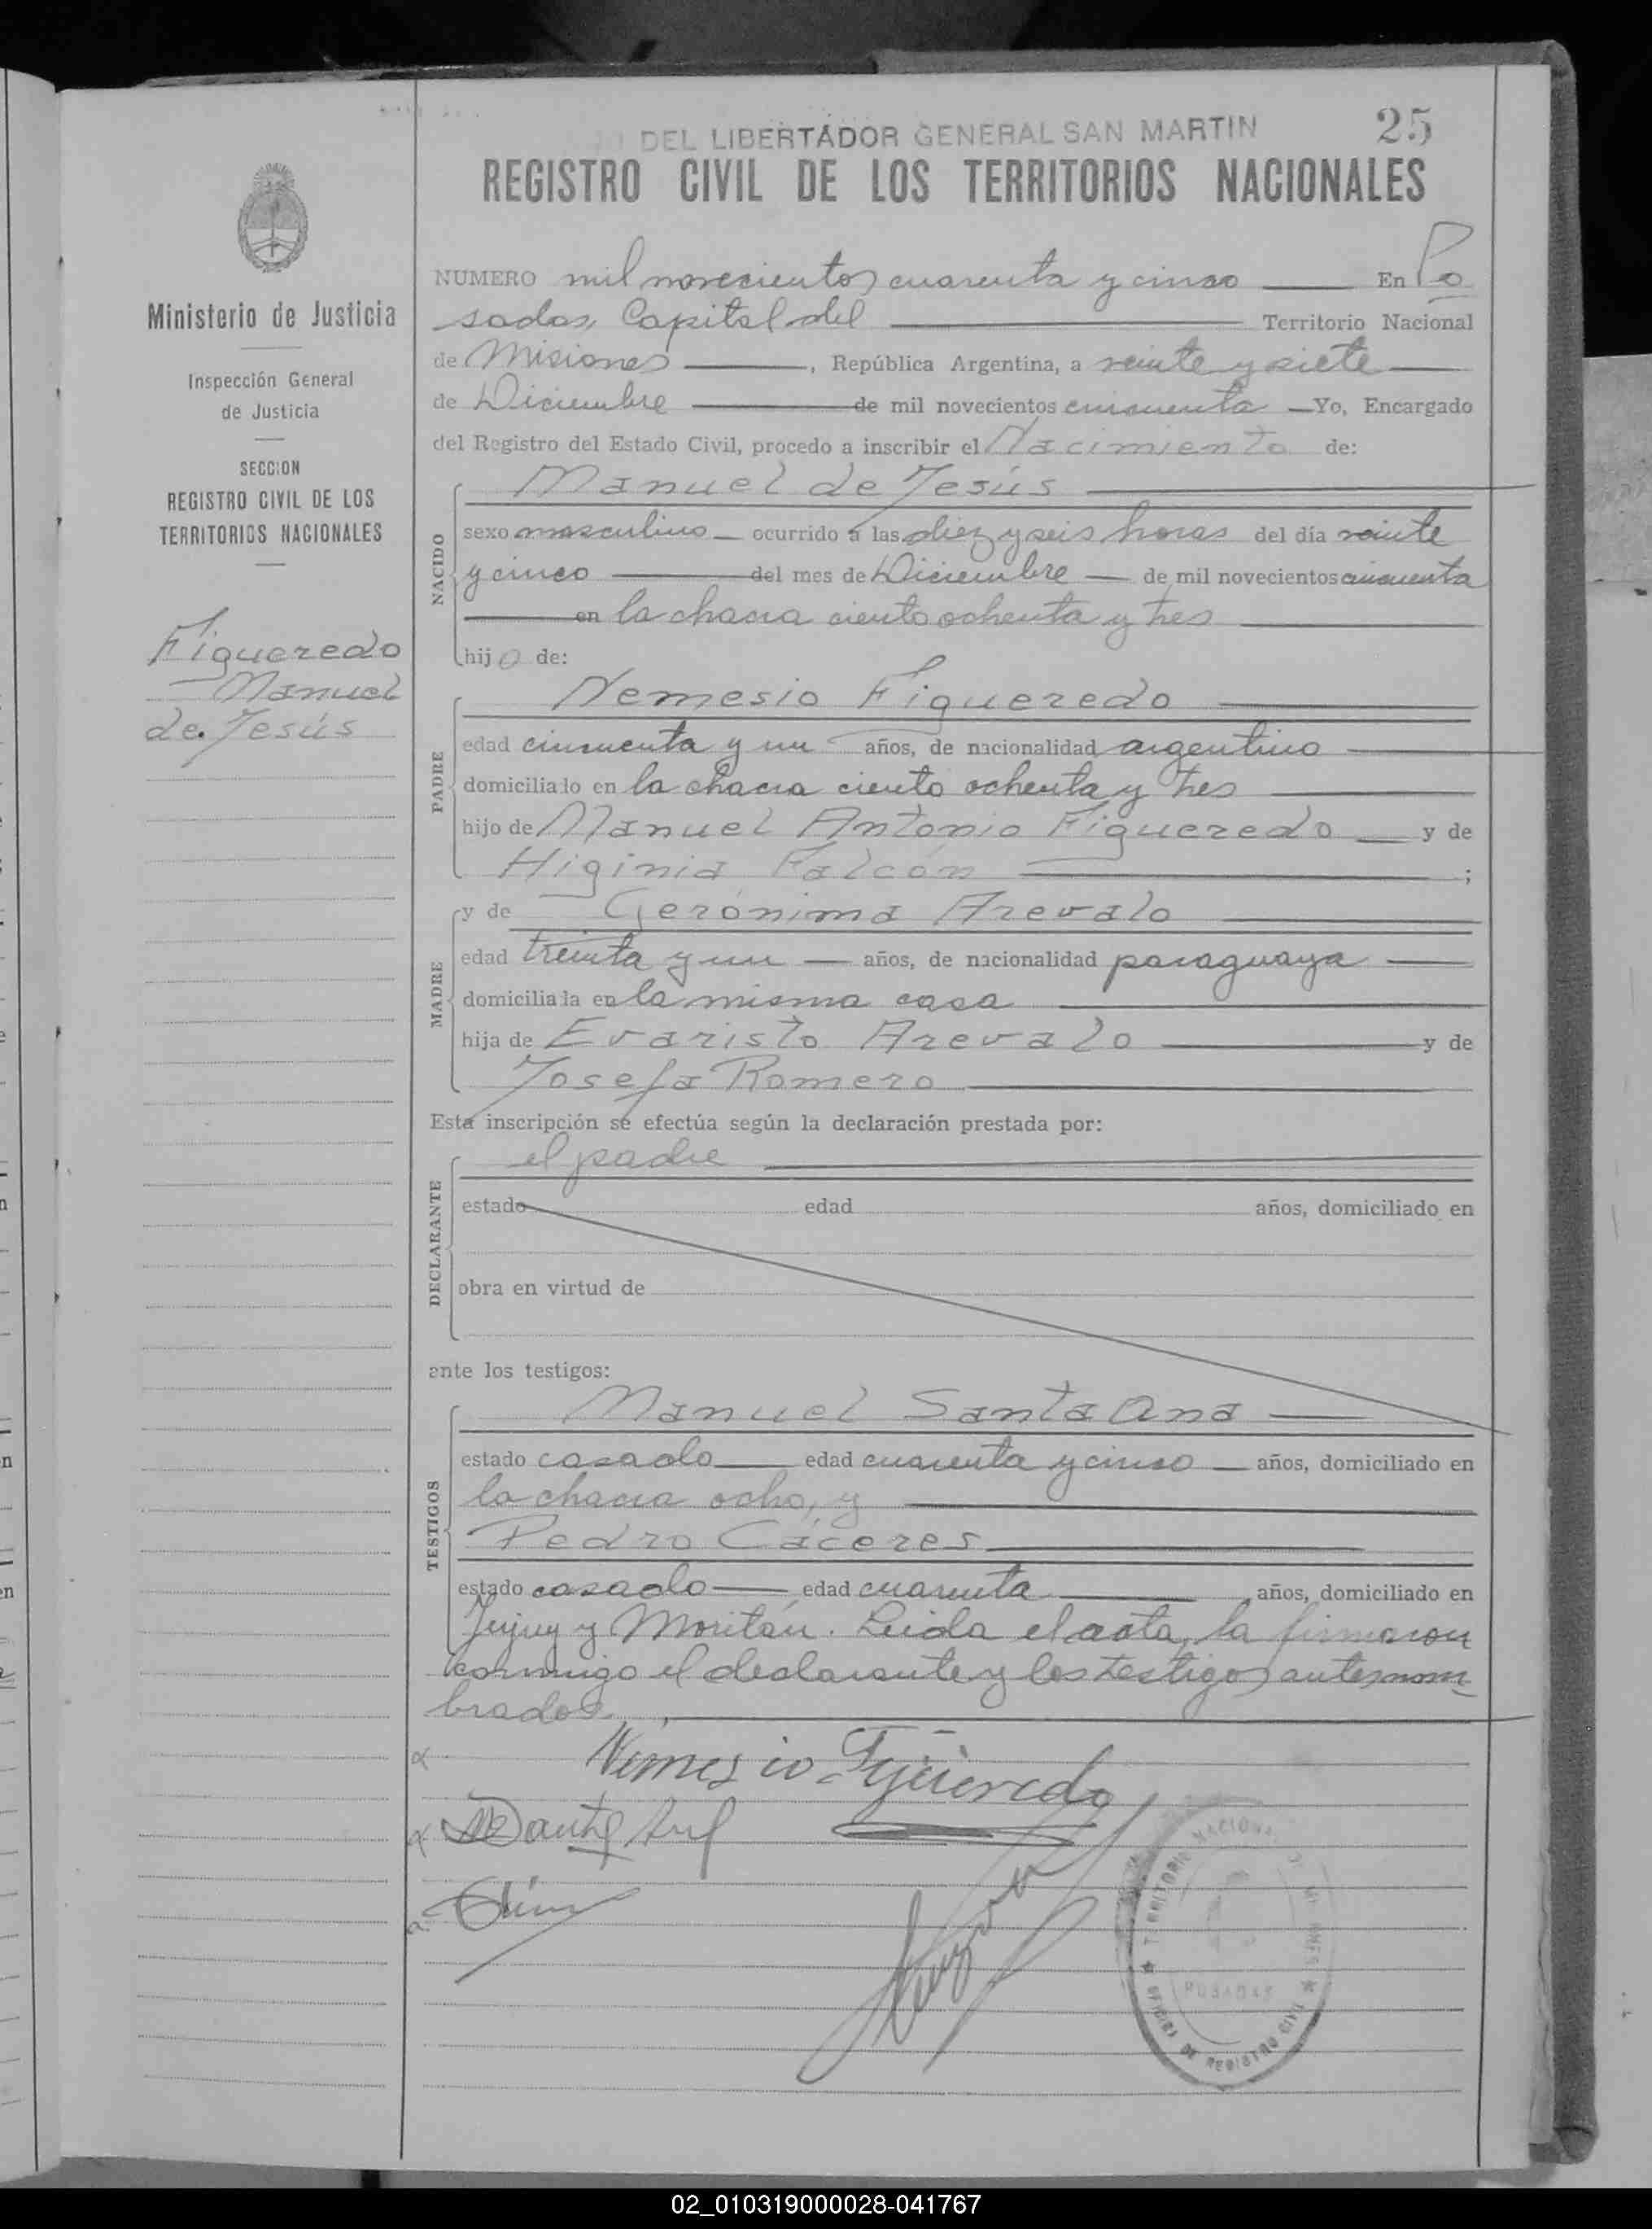 25
DEL LIBERTADOR GENERAL SAN MARTIN
REGISTRO CIVIL DE LOS TERRITORIOS NACIONALES
Ministerio de Justicia
Inspección General
de Justicia
SECCION
REGISTRO CIVIL DE LOS
TERRITORIOS NACIONALES
Figueredo
Manuel
de Jesús
NUMERO mil novecientos cuarenta y cinco En Po
sadas, Capital del Territorio Nacional
de Misiones, República Argentina, a veinte y siete
de Diciembre de mil novecientos cincuenta Yo, Encargado
del Registro del Estado Civil, procedo a inscribir el Nacimiento de:
Manuel de Jesús
NACIDO
sexo masculino ocurrido a las diez y seis horas del día veinte
y cinco del mes de Diciembre de mil novecientos cincuenta
en la chacra ciento ochenta y tres
hijo de:
Nemesio Figueredo
PADRE
edad cincuenta y un años, de nacionalidad argentino
domiciliado en la chacra ciento ochenta y tres
hijo de Manuel Antonio Figueredo y de
Higinia Falcón ;
y de Gerónima Arevalo
MADRE
edad treinta y un años, de nacionalidad paraguaya
domiciliada en la misma casa
hija de Evaristo Arevalo y de
Josefa Romero
Esta inscripción se efectúa según la declaración prestada por:
el padre
DECLARANTE
estado edad años, domiciliado en
obra en virtud de
ante los testigos:
Manuel Santa Ana
TESTIGOS
estado casado edad cuarenta y cinco años, domiciliado en
la chacra ocho, y
Pedro Cáceres
estado casado edad cuarenta años, domiciliado en
Jujuy y Moritán. Leida el acta, la firmaron
conmigo el declarante y los testigos antenom
brados.
Nemesio Figueredo
TERRITORIO NACIONAL DE MISIONES
POSADAS
OFICINA DE REGISTRO CIVIL
02_010319000028-041767